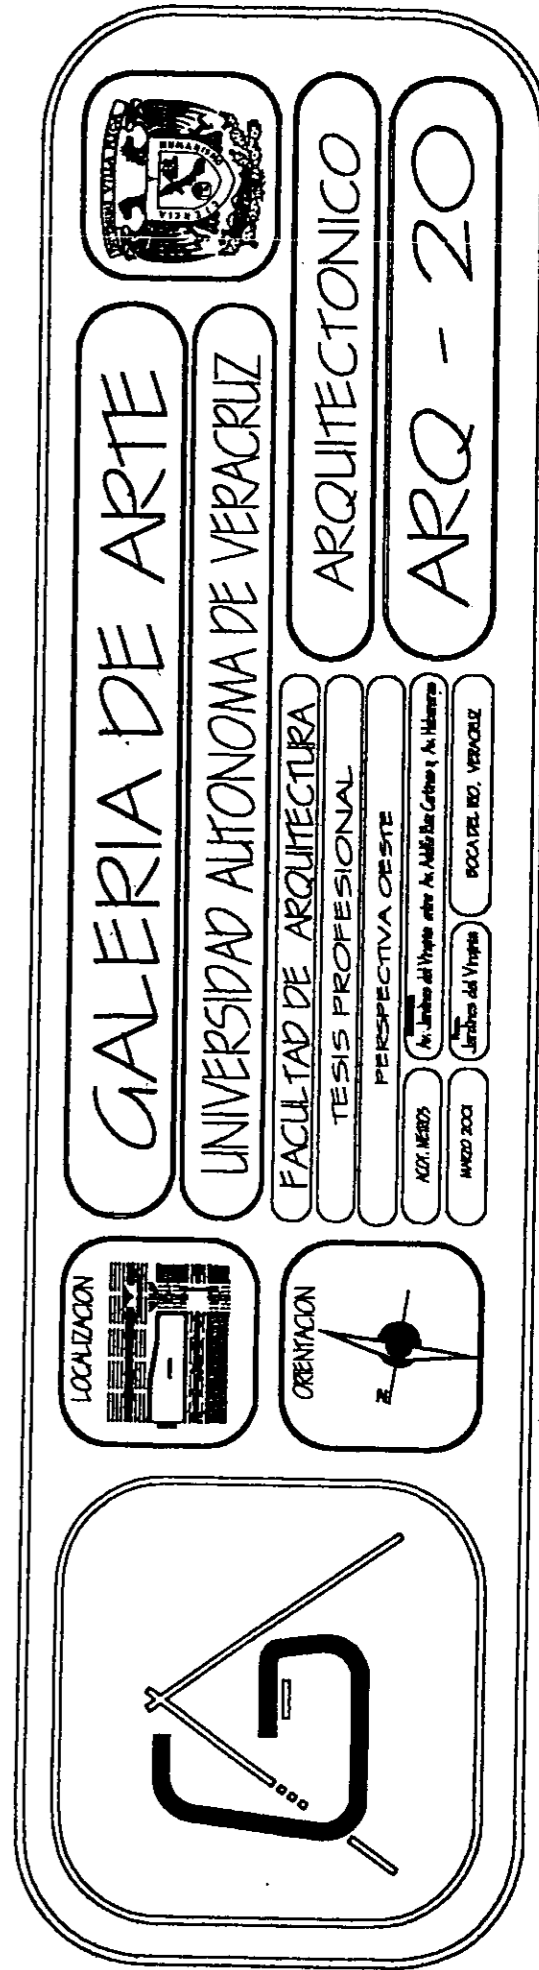 LOCALIZACION
ORIENTACION
N
GALERIA DE ARTE
UNIVERSIDAD AUTONOMA DE VERACRUZ
FACULTAD DE ARQUITECTURA
TESIS PROFESIONAL
PERSPECTIVA OESTE
ACOT. METROS
Av. Jardines del Virginia entre Av. Adolfo Ruiz Cortines y Av. Habaneras
MARZO 2001
Jardines del Virginia
BOCA DEL RIO, VERACRUZ
ARQUITECTONICO
ARQ - 20